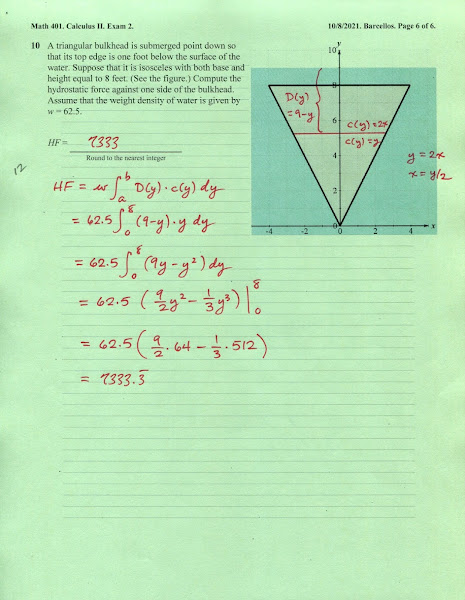 Math 401. Calculus II. Exam 2.
10/8/2021. Barcellos. Page 6 of 6.
10 A triangular bulkhead is submerged point down so
that its top edge is one foot below the surface of the
water. Suppose that it is isosceles with both base and
height equal to 8 feet. (See the figure.) Compute the
hydrostatic force against one side of the bulkhead.
Assume that the weight density of water is given by
w = 62.5.
HF = 7333
Round to the nearest integer
12
y
10
8
6
4
2
0
-4 -2 0 2 4 x
D(y)
= 9-y
c(y) = 2x
c(y) = y
y = 2x
x = y/2
HF = w ∫_a^b D(y) · c(y) dy
= 62.5 ∫_0^8 (9-y) · y dy
= 62.5 ∫_0^8 (9y - y²) dy
= 62.5 ( 9/2 y² - 1/3 y³ ) |_0^8
= 62.5 ( 9/2 · 64 - 1/3 · 512 )
= 7333.3̅